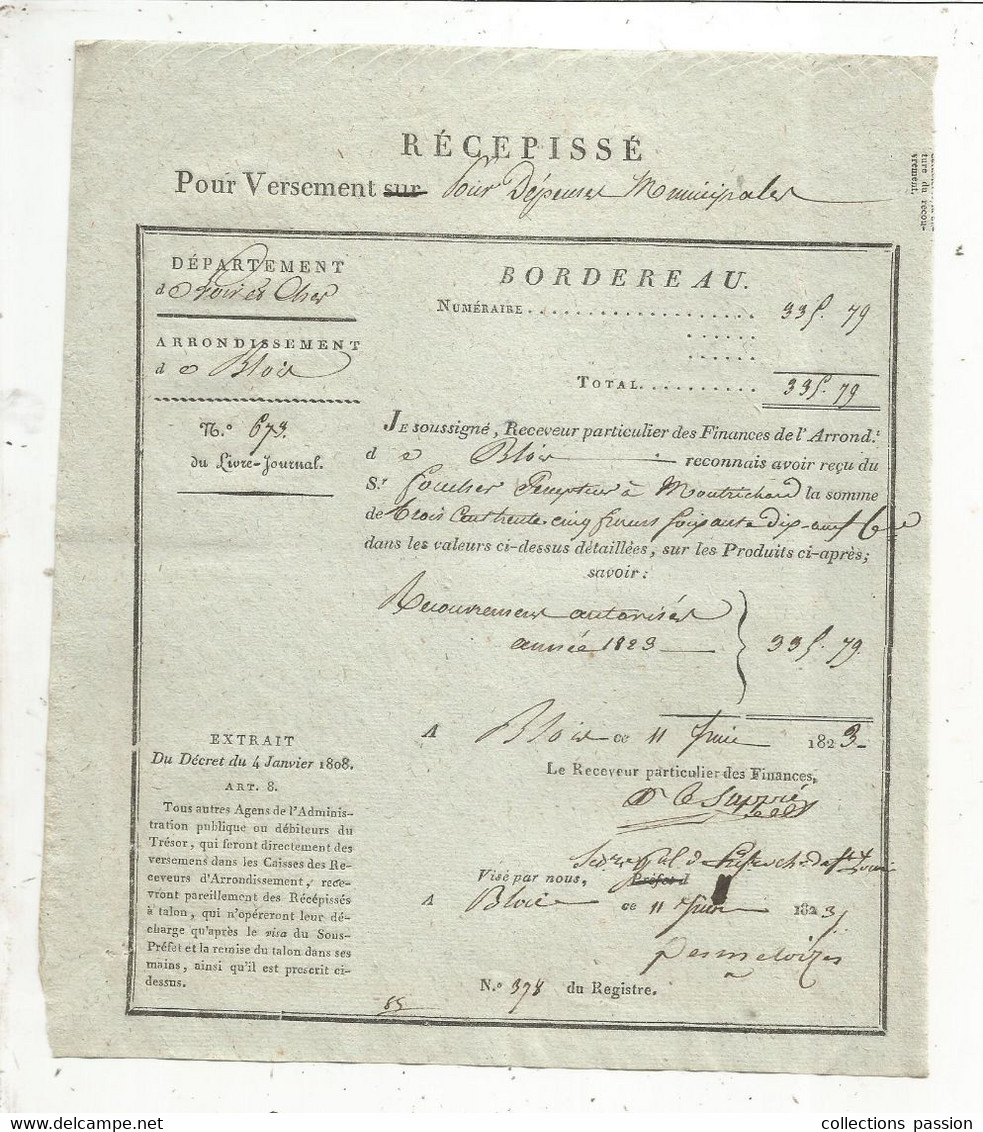 RÉCEPISSÉ
Pour Versement sur Pour Dépenses Municipales
ture du recou-
vrement.
DÉPARTEMENT
de Loir et Cher
ARRONDISSEMENT
de Blois
N.º 673.
du Livre-Journal.
BORDEREAU.
NUMÉRAIRE . . . . . . . . . . . . . . . . . . . 335. 79
TOTAL. . . . . . . . . . 335. 79
JE soussigné, Receveur particulier des Finances de l'Arrond.t
de Blois reconnais avoir reçu du
S.r Foucher Percepteur à Montrichard la somme
de trois Cent trente-cinq francs soixante dix-neuf Ces
dans les valeurs ci-dessus détaillées, sur les Produits ci-après;
savoir:
Recouvremens autorisés
année 1823 335. 79
A Blois ce 11 Juin 1823
Le Receveur particulier des Finances,
Visé par nous, Préfet d
A Blois ce 11 Juin 1823
N.º 378 du Registre.
EXTRAIT
Du Décret du 4 Janvier 1808.
ART. 8.
Tous autres Agens de l'Adminis-
tration publique ou débiteurs du
Trésor, qui feront directement des
versemens dans les Caisses des Re-
ceveurs d'Arrondissement, rece-
vront pareillement des Récépissés
à talon, qui n'opéreront leur dé-
charge qu'après le visa du Sous-
Préfet et la remise du talon dans ses
mains, ainsi qu'il est prescrit ci-
dessus.
85
collections passion